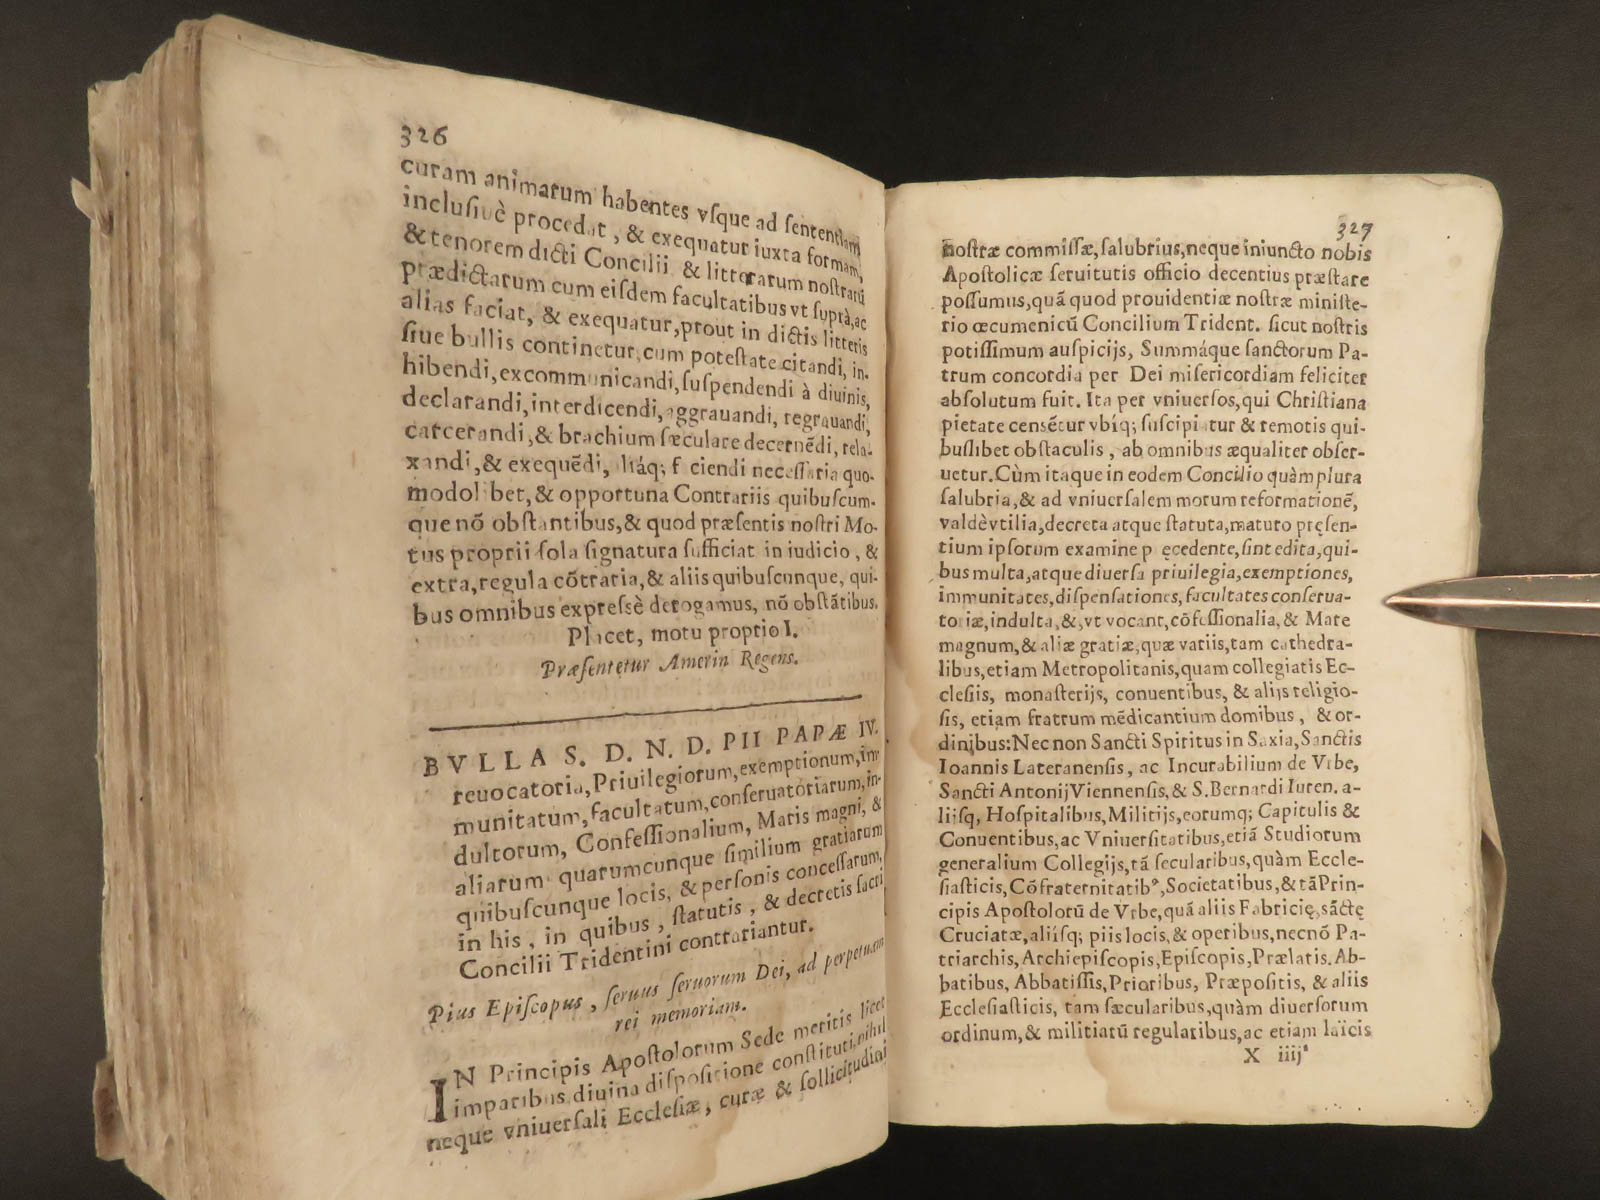 326
curam animarum habentes vſque ad ſententiam
incluſiuè procedat, & exequatur iuxta formam,
& tenorem dicti Concilii & litterarum noſtrarũ
prædictarum cum eiſdem facultatibus vt ſuprà, ac
alias faciat, & exequatur, prout in dictis litteris
ſiue bullis continetur, cum poteſtate citandi, in-
hibendi, excommunicandi, ſuſpendendi à diuinis,
declarandi, interdicendi, aggrauandi, regrauandi,
carcerandi, & brachium ſæculare decernẽdi, rela-
xandi, & exequẽdi, aliáq; faciendi neceſſaria quo-
modolibet, & opportuna Contrariis quibuſcum-
que nõ obſtantibus, & quod præſentis noſtri Mo-
tus proprii ſola ſignatura ſufficiat in iudicio, &
extra, regula cõtraria, & aliis quibuſcunque, qui-
bus omnibus expreſsè derogamus, nõ obſtãtibus.
Placet, motu proptio I.
Præſentetur Amerin Regens.
BVLLA S. D. N. D. PII PAPÆ IV.
reuocatoria, Priuilegiorum, exemptionum, im-
munitatum, facultatum, conſeruatoriarum, in-
dultorum, Confeſſionalium, Maris magni, &
aliarum quarumcunque ſimilium gratiarum
quibuſcunque locis, & perſonis conceſſarum,
in his, in quibus, ſtatutis, & decretis ſacri
Concilii Tridentini contrariantur.
Pius Epiſcopus, ſeruus ſeruorum Dei, ad perpetuam
rei memoriam.
IN Principis Apoſtolorum Sede meritis licet
imparibus diuina diſpoſitione conſtituti, nihil
neque vniuerſali Eccleſiæ, curæ & ſollicitudini
327
noſtræ commiſſæ, ſalubrius, neque iniuncto nobis
Apoſtolicæ ſeruitutis officio decentius præſtare
poſſumus, quã quod prouidentiæ noſtræ miniſte-
rio œcumenicũ Concilium Trident. ſicut noſtris
potiſſimum auſpicijs, Summáque ſanctorum Pa-
trum concordia per Dei miſericordiam feliciter
abſolutum fuit. Ita per vniuerſos, qui Chriſtiana
pietate censẽtur vbíq; ſuſcipiatur & remotis qui-
buſlibet obſtaculis, ab omnibus æqualiter obſer-
uetur. Cùm itaque in eodem Concilio quàmplura
ſalubria, & ad vniuerſalem morum reformationẽ,
valdè vtilia, decreta atque ſtatuta, maturo pręſen-
tium ipſorum examine p ecedente, ſint edita, qui-
bus multa, atque diuerſa priuilegia, exemptiones,
immunitates, diſpenſationes, facultates conſerua-
toriæ, indulta, &, vt vocant, cõfeſſionalia, & Mare
magnum, & aliæ gratiæ, quæ variis, tam cathedra-
libus, etiam Metropolitanis, quam collegiatis Ec-
cleſiis, monaſterijs, conuentibus, & alijs religio-
ſis, etiam fratrum mẽdicantium domibus, & or-
dinibus: Nec non Sancti Spiritus in Saxia, Sanctis
Ioannis Lateranenſis, ac Incurabilium de Vrbe,
Sancti Antonij Viennenſis, & S. Bernardi Iuren. a-
liiſq, Hoſpitalibus, Militijs, eorumq; Capitulis &
Conuentibus, ac Vniuerſitatibus, etiã Studiorum
generalium Collegijs, tã ſecularibus, quàm Eccle-
ſiaſticis, Cõfraternitatibꝰ, Societatibus, & tã Prin-
cipis Apoſtolorũ de Vrbe, quã aliis Fabricię, sãctę
Cruciatæ, aliíſq; piis locis, & operibus, necnõ Pa-
triarchis, Archiepiſcopis, Epiſcopis, Prælatis. Ab-
batibus, Abbatiſſis, Prioribus, Præpoſitis, & aliis
Eccleſiaſticis, tam ſæcularibus, quàm diuerſorum
ordinum, & militiarũ regularibus, ac etiam laïcis
X iiij